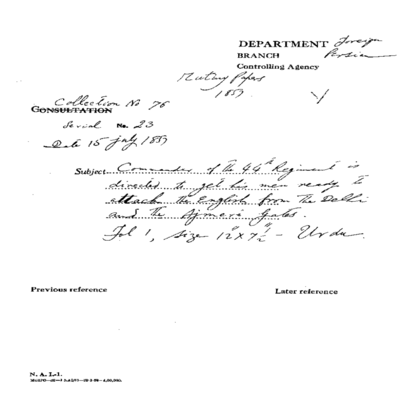 DEPARTMENT Foreign
BRANCH Persian
Controlling Agency
Mutiny Papers
1857
Collection No 76
CONSULTATION
Serial No. 23
Date 15 July 1857
Subject Commander of the 44th Regiment is
directed to get his men ready to
attack the English from the Delhi
and the Ajmeri Gates.
Fol 1, Size 12" x 7½" - Urdu.
Previous reference
Later reference
N. A. I.-1.